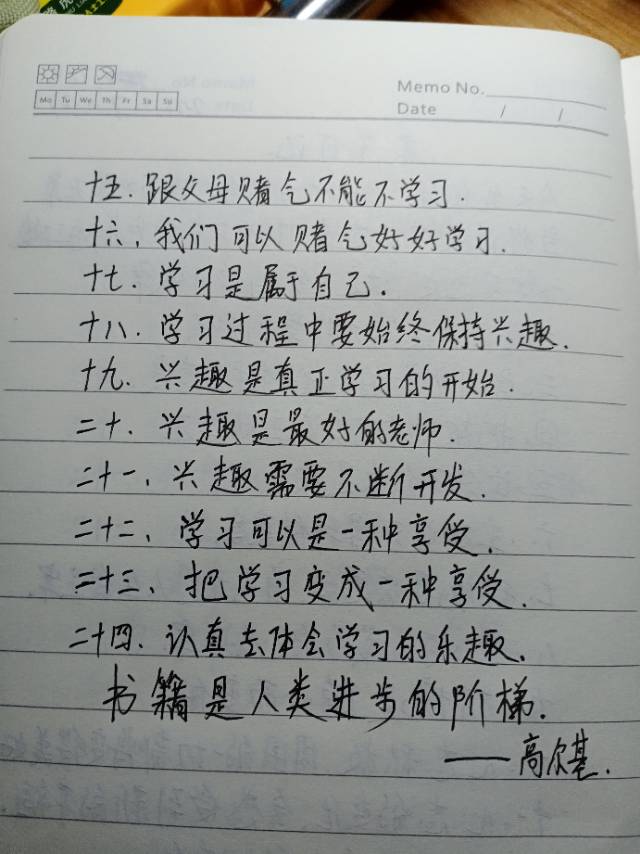 Mo Tu We Th Fr Sa Su
Memo No.
Date / /
十五.跟父母赌气不能不学习.
十六,我们可以赌气好好学习.
十七.学习是属于自己.
十八.学习过程中要始终保持兴趣.
十九.兴趣是真正学习的开始.
二十.兴趣是最好的老师.
二十一、兴趣需要不断开发.
二十二、学习可以是一种享受.
二十三、把学习变成一种享受.
二十四.认真去体会学习的乐趣.
书籍是人类进步的阶梯.
——高尔基.